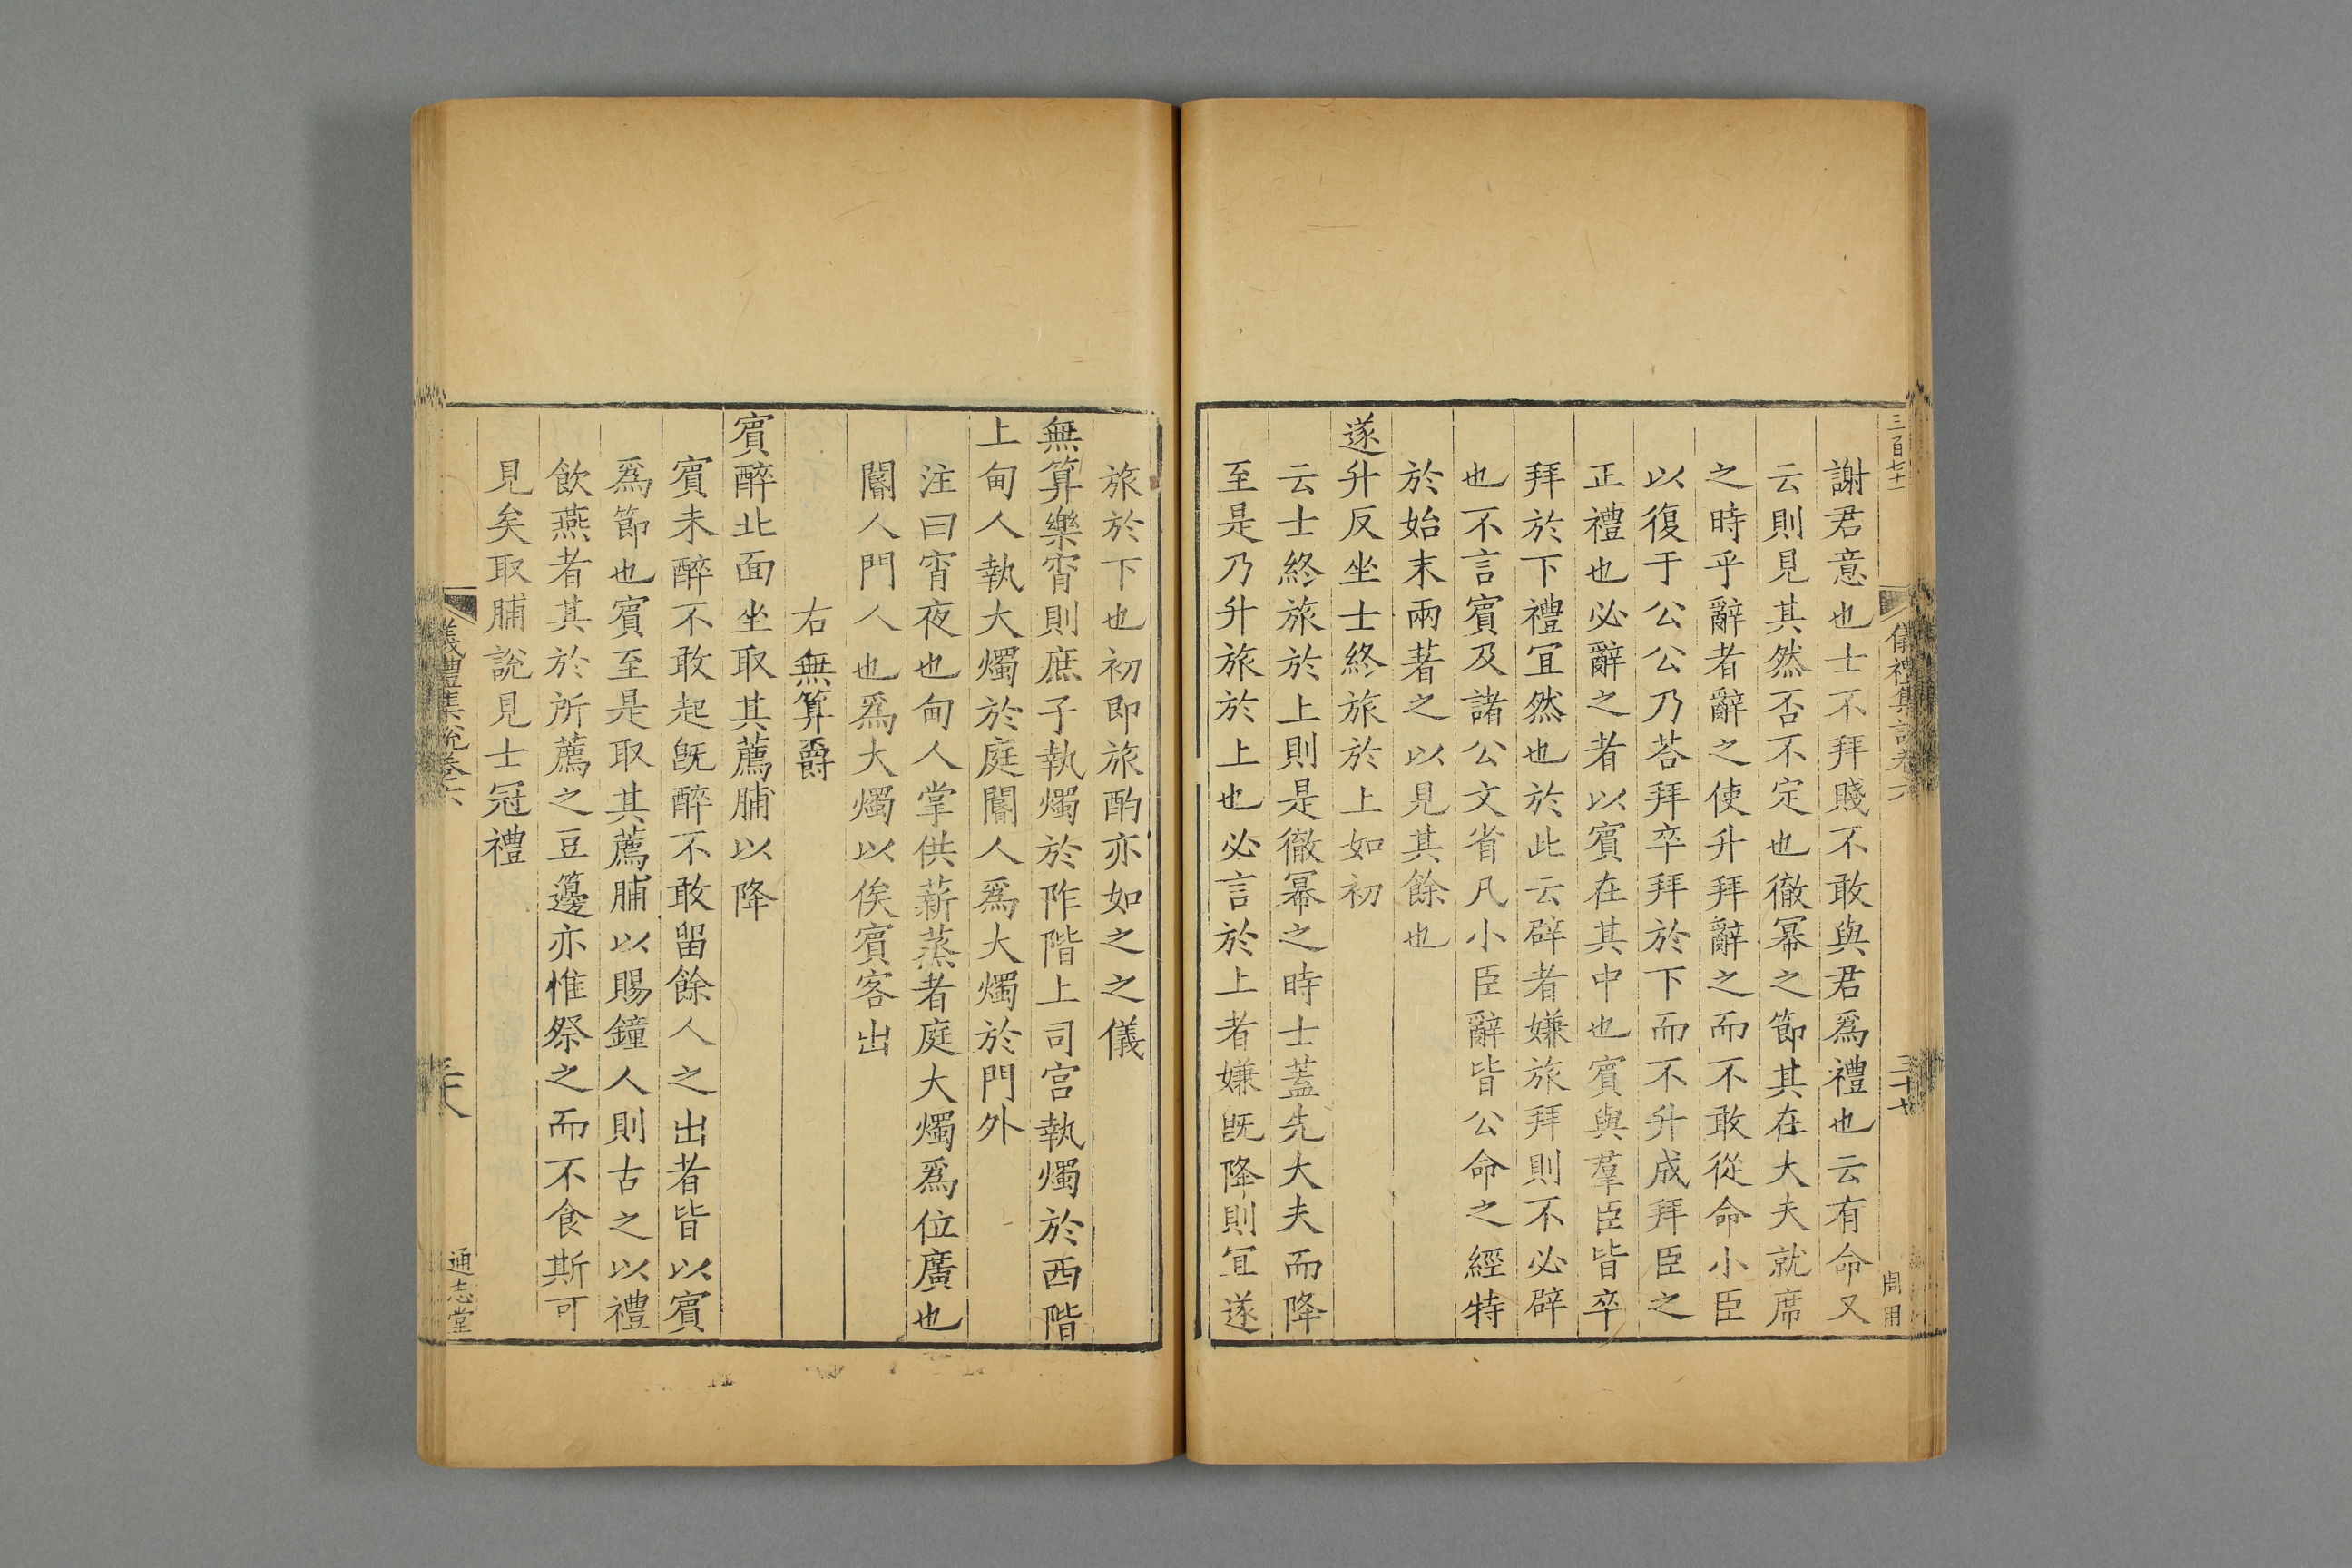 三百七十一
儀禮集說卷六
二十七
周用
謝君意也士不拜賤不敢與君爲禮也云有命又
云則見其然否不定也徹冪之節其在大夫就席
之時乎辭者辭之使升拜辭之而不敢從命小臣
以復于公公乃荅拜卒拜於下而不升成拜臣之
正禮也必辭之者以賓在其中也賓與羣臣皆卒
拜於下禮宜然也於此云辟者嫌旅拜則不必辟
也不言賓及諸公文省凡小臣辭皆公命之經特
於始末兩著之以見其餘也
遂升反坐士終旅於上如初
云士終旅於上則是徹冪之時士蓋先大夫而降
至是乃升旅於上也必言於上者嫌旣降則宜遂
旅於下也初即旅酌亦如之之儀
無算樂宵則庶子執燭於阼階上司宮執燭於西階
上甸人執大燭於庭閽人爲大燭於門外
注曰宵夜也甸人掌供薪蒸者庭大燭爲位廣也
閽人門人也爲大燭以俟賓客出
右無算爵
賓醉北面坐取其薦脯以降
賓未醉不敢起旣醉不敢留餘人之出者皆以賓
爲節也賓至是取其薦脯以賜鐘人則古之以禮
飲燕者其於所薦之豆籩亦惟祭之而不食斯可
見矣取脯說見士冠禮
儀禮集說卷六
通志堂